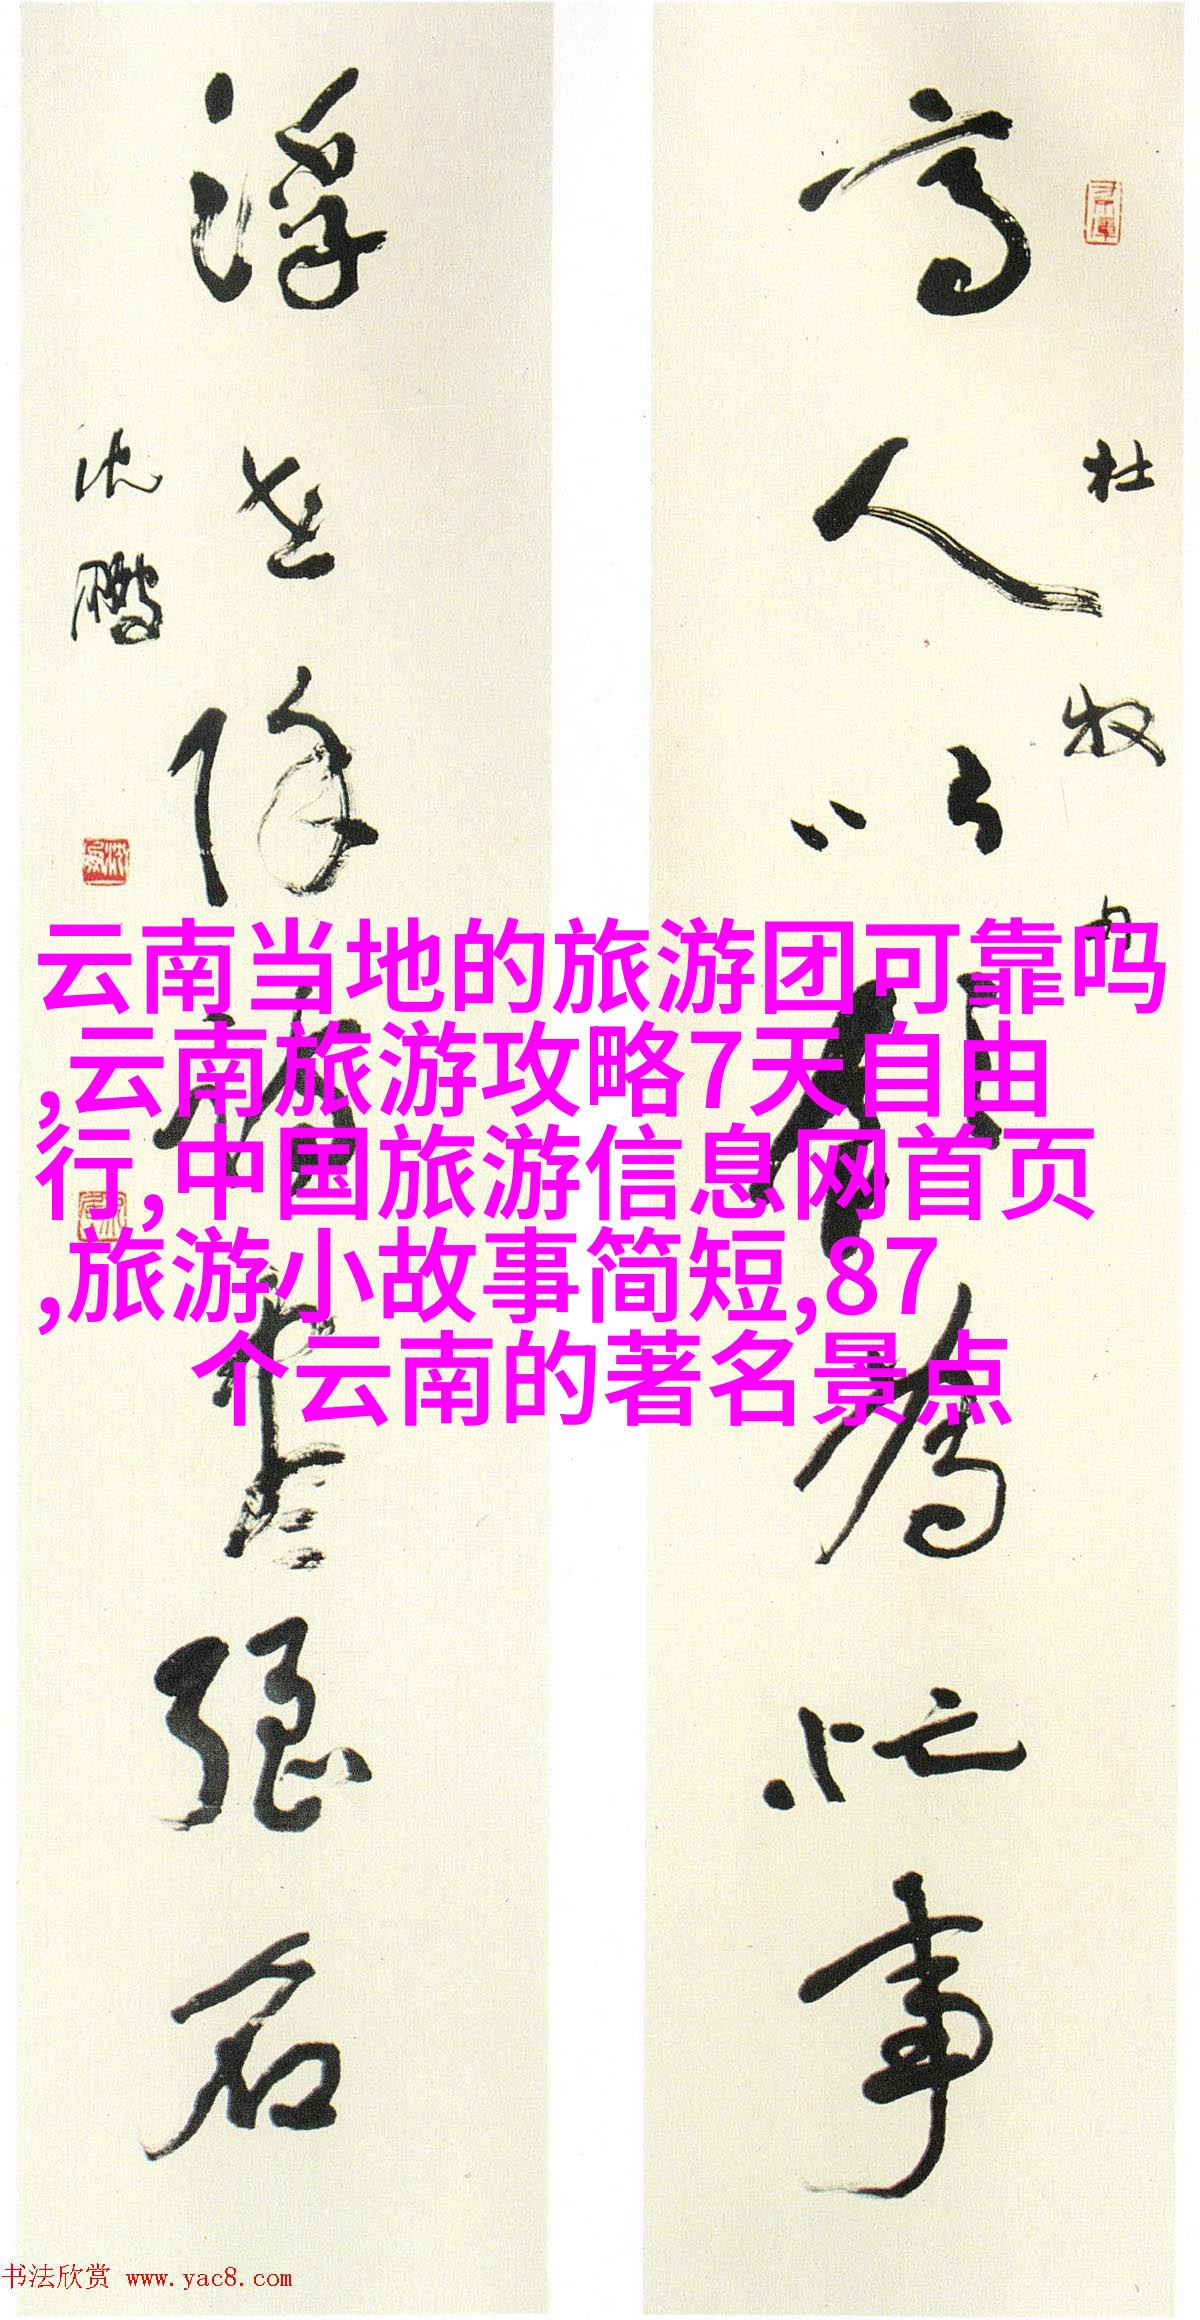 高人以
為忙事
杜牧句
浮世除
强名
沈鹏
云南当地的旅游团可靠吗
,云南旅游攻略7天自由
行,中国旅游信息网首页
,旅游小故事简短,87
个云南的著名景点
书法欣赏 www.yac8.com